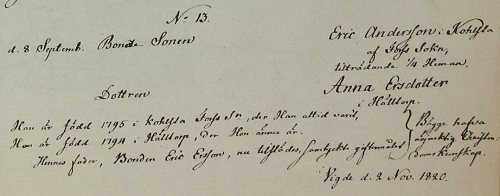 No 13.
d. 8 Septemb. Bonde Sonen Eric Andersson i Kohlsta
af Torss Sokn,
tillträdande 1/4 Heman.
Dottren Anna Ersdotter
i Hälltorp.
Han är född 1795 i Kohlsta Torss Sn, der Han alltid varit,
Hon är född 1794 i Hälltorp, der Hon ännu är.
Hennes fader, Bonden Eric Ersson, nu tillstädes, samtyckte giftermålet
Bägge hafva
Christen-
doms Kunskap.
Vigde d. 2 Nov. 1820.